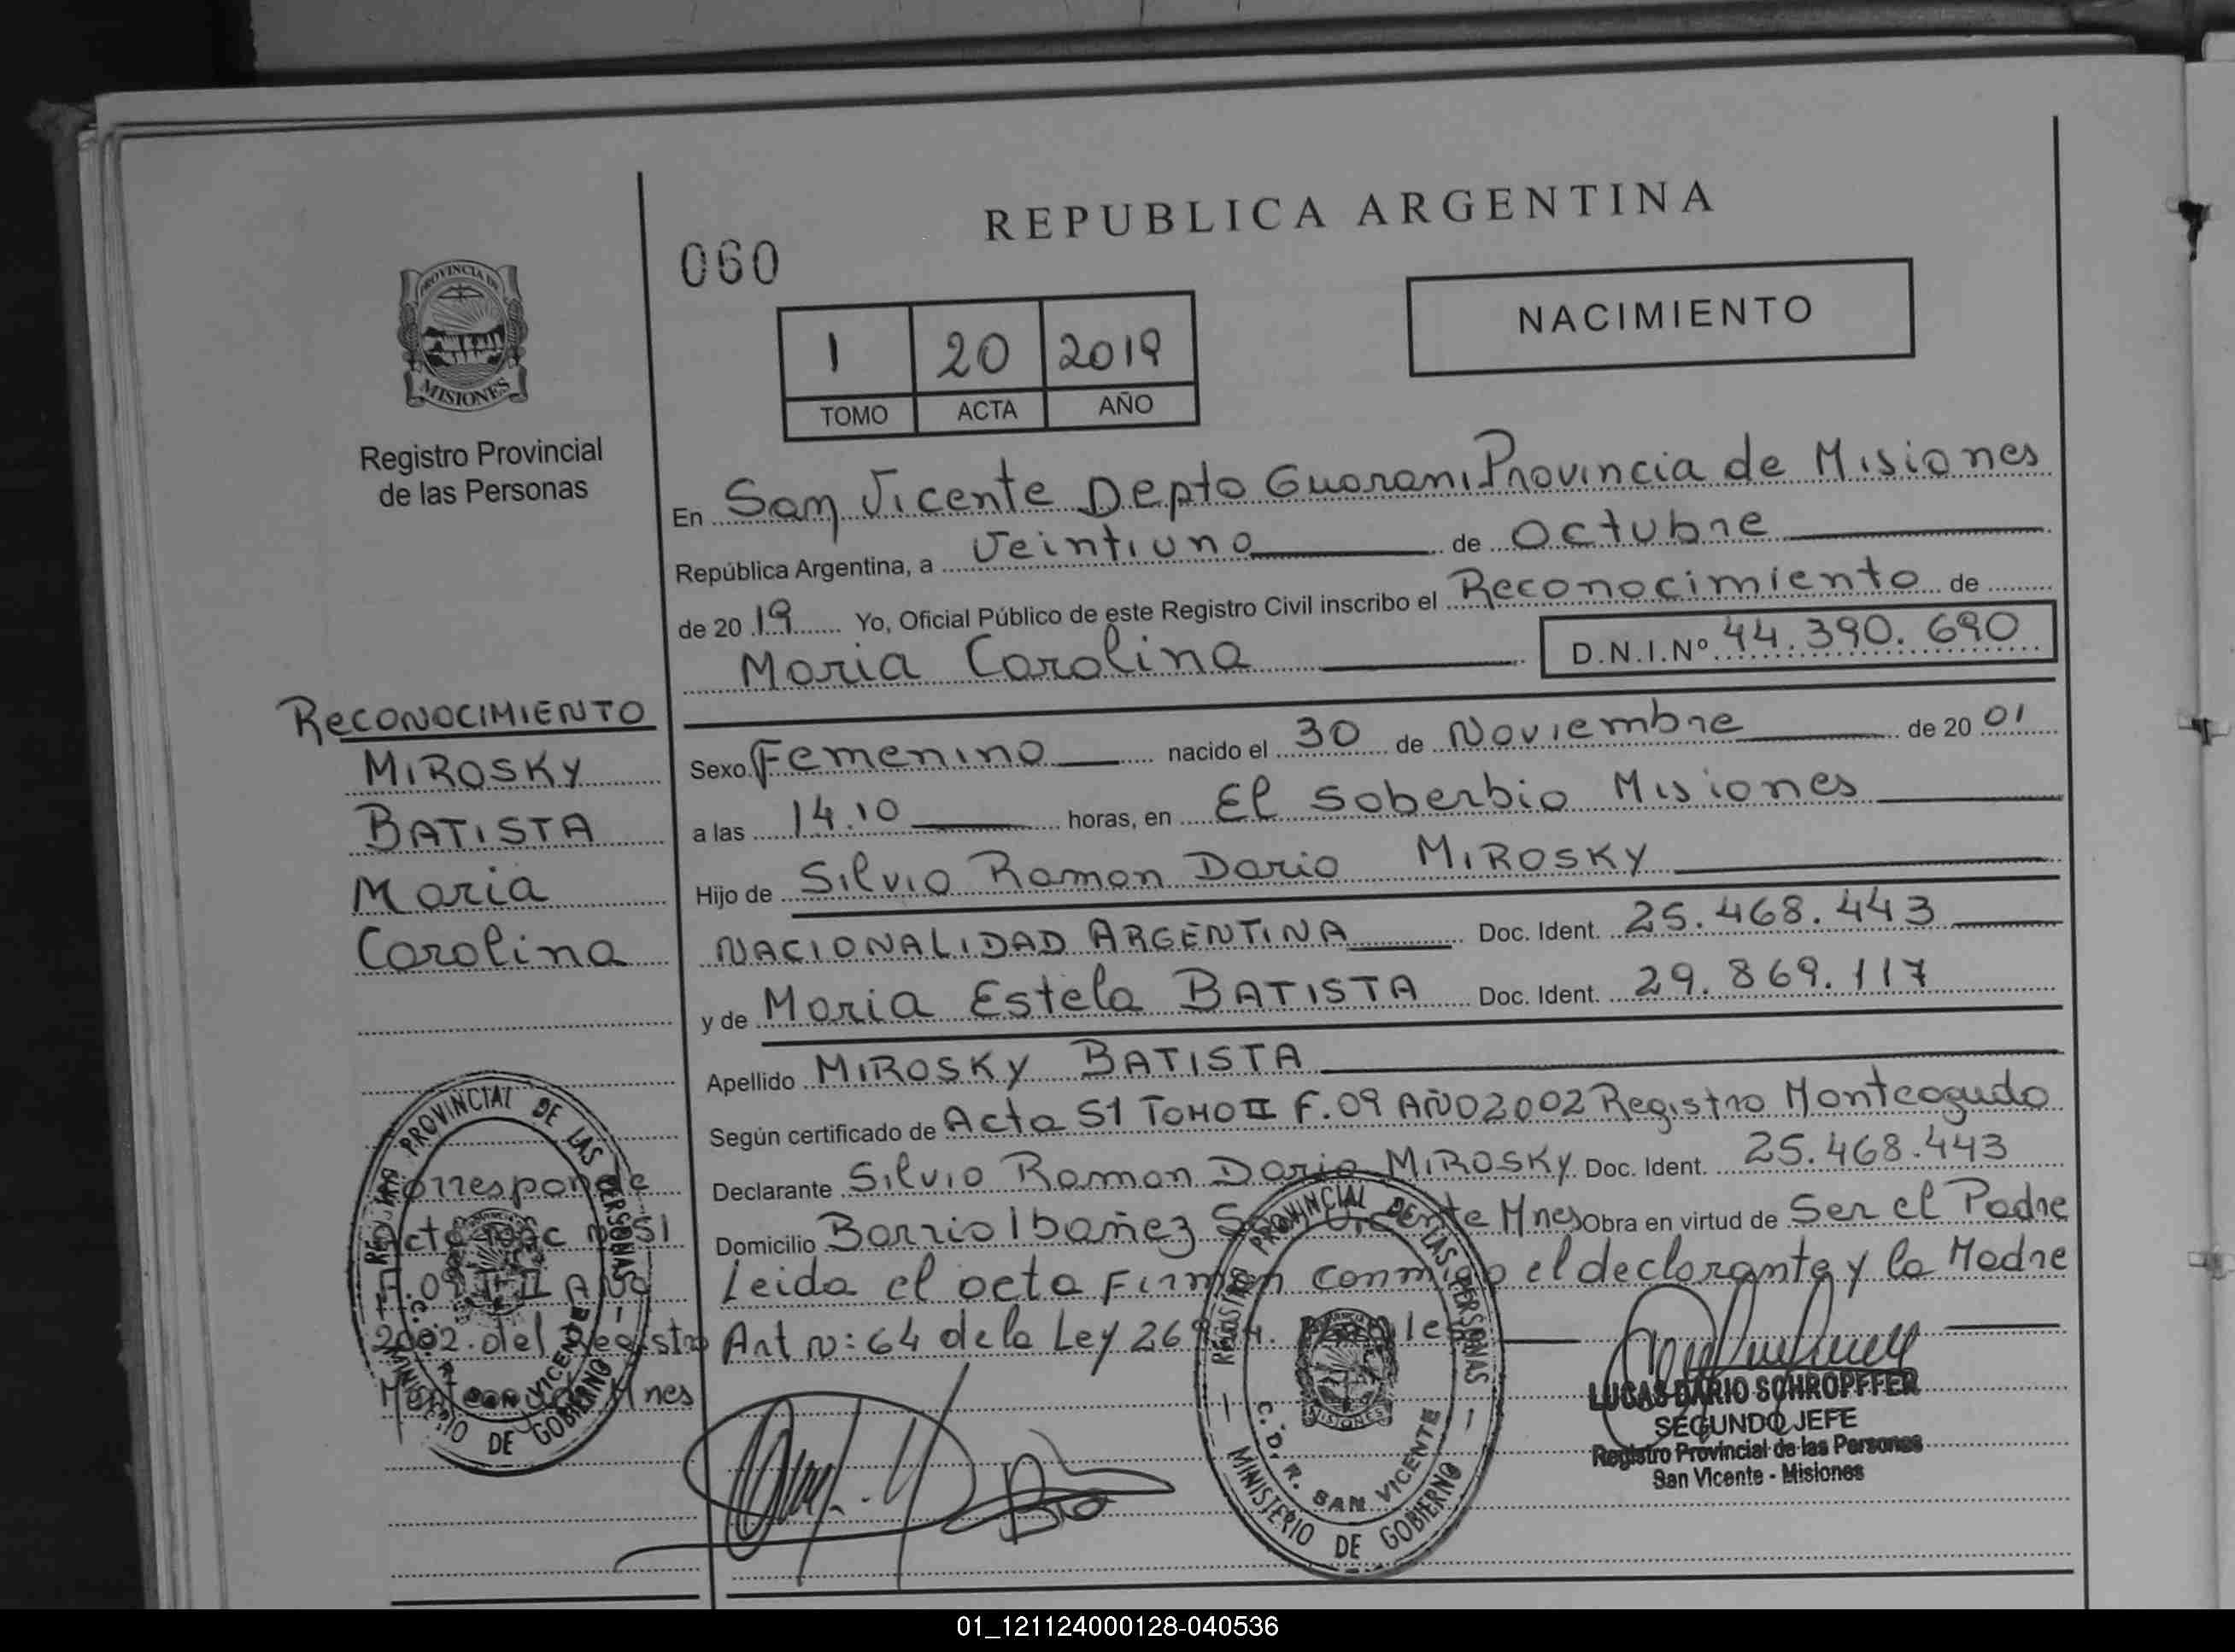 REPUBLICA ARGENTINA
060
NACIMIENTO
1 20 2019
TOMO ACTA AÑO
PROVINCIA DE
MISIONES
Registro Provincial
de las Personas
En San Vicente Depto Guarani Provincia de Misiones
República Argentina, a Veintiuno de Octubre
de 2019 Yo, Oficial Público de este Registro Civil inscribo el Reconocimiento de
Maria Carolina D.N.I.Nº 44.390.690
RECONOCIMIENTO
MIROSKY
BATISTA
Maria
Carolina
Sexo Femenino nacido el 30 de Noviembre de 20 01
a las 14.10 horas, en El Soberbio Misiones
Hijo de Silvio Ramon Dario MIROSKY
NACIONALIDAD ARGENTINA Doc. Ident. 25.468.443
y de Maria Estela BATISTA Doc. Ident. 29.869.117
Apellido MIROSKY BATISTA
Según certificado de Acta 51 TOMO II F.09 AÑO 2002 Registro Monteagudo
Declarante Silvio Ramon Dario MIROSKY Doc. Ident. 25.468.443
Domicilio Barrio Ibañez San Vicente Mnes Obra en virtud de Ser el Padre
Leida el acta Firman conmigo el declarante y la Madre
Art n: 64 de la Ley 26
Corresponde
Acta Nac nº 51
F.09 T-II Año
2002 del Registro
Mnes
REGISTRO PROVINCIAL DE LAS PERSONAS
MINISTERIO DE GOBIERNO
C.D.R. SAN VICENTE
REGISTRO PROVINCIAL DE LAS PERSONAS
MINISTERIO DE GOBIERNO
C.D.R. SAN VICENTE
MISIONES
LUCAS DARIO SCHROPFFER
SEGUNDO JEFE
Registro Provincial de las Personas
San Vicente - Misiones
01_121124000128-040536